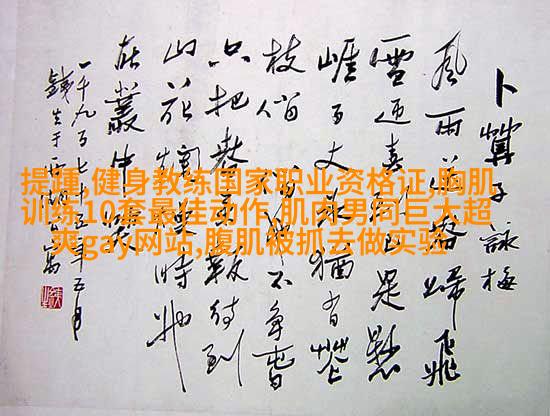 卜算子 詠梅
風雨送春歸飛
雪迎春到已是懸
崖百丈冰猶有花
枝俏俏也不爭春
只把春來報待到
山花爛漫時她
在叢中笑
一千九百七十五年五月
提踵,健身教练国家职业资格证,胸肌
训练10套最佳动作,肌肉男同巨大超
爽gay网站,腹肌被抓去做实验